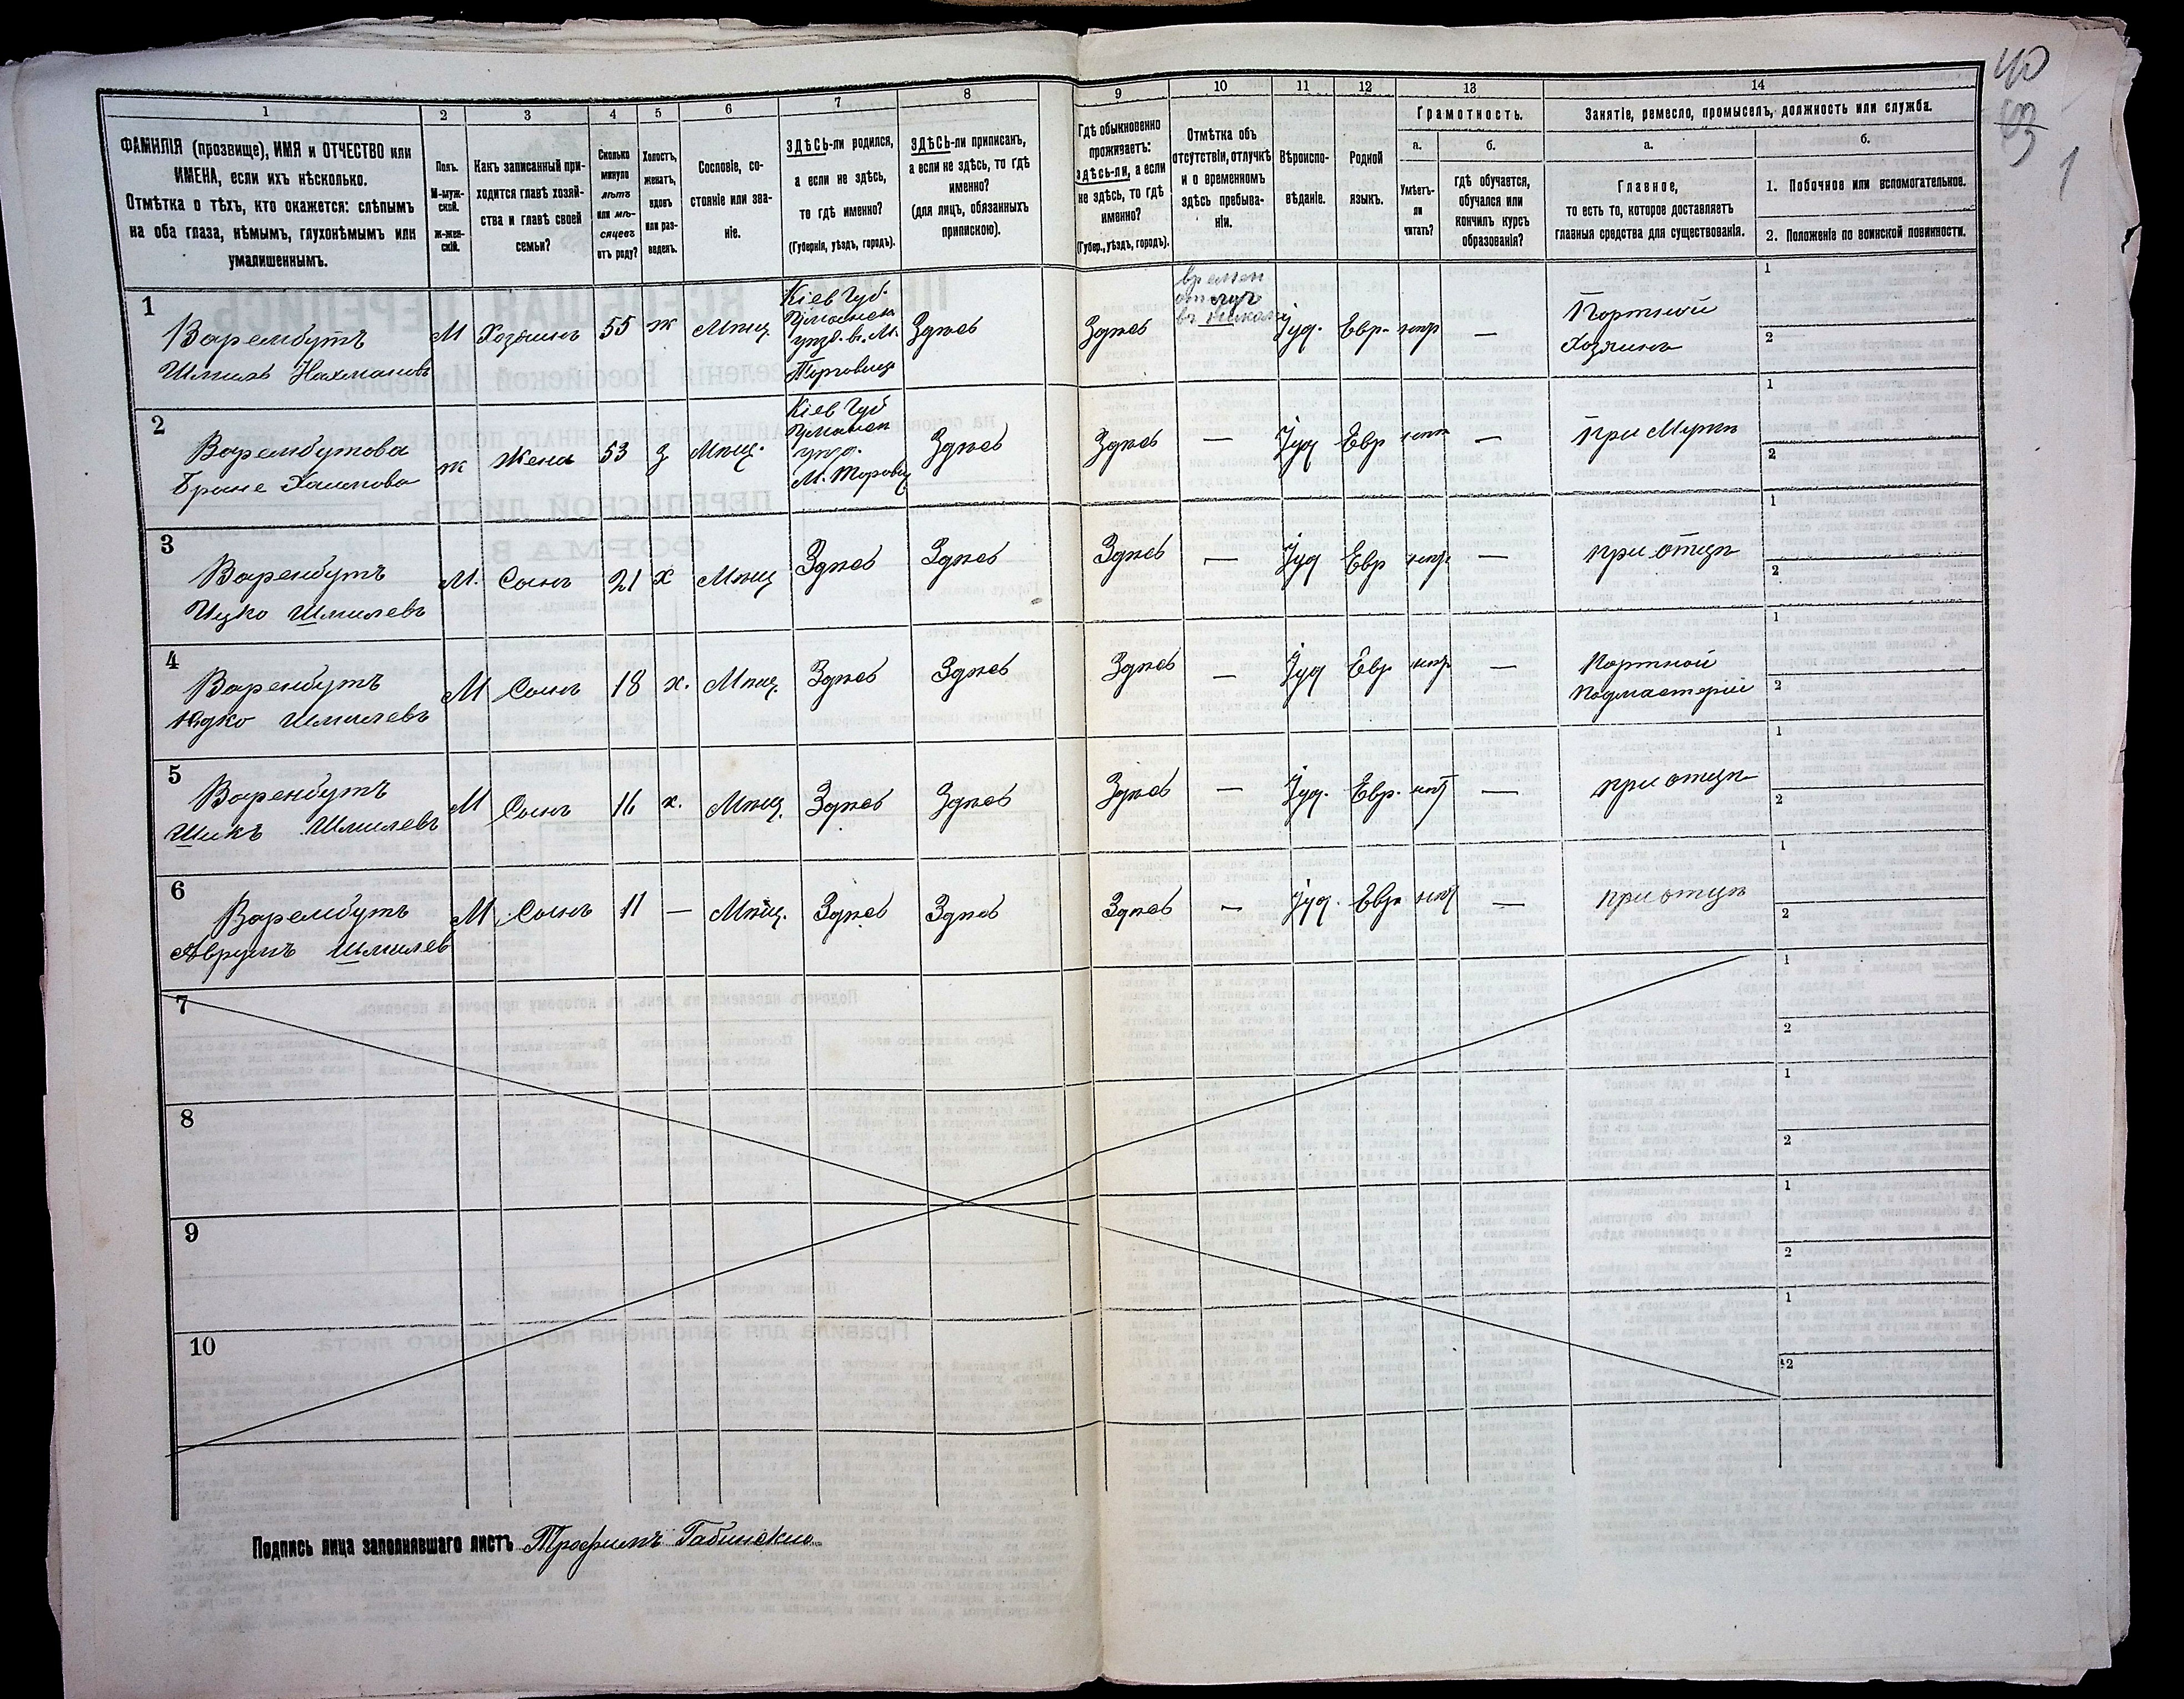 40
63
1
1
2
3
4
5
6
7
8
9
10
11
12
13
14
ФАМИЛІЯ (прозвище), ИМЯ и ОТЧЕСТВО или
ИМЕНА, если ихъ нѣсколько.
Отмѣтка о тѣхъ, кто окажется: слѣпымъ
на оба глаза, нѣмымъ, глухонѣмымъ или
умалишеннымъ.
Полъ.
М-муж-
ской.
Ж-жен-
скій.
Какъ записанный при-
ходится главѣ хозяй-
ства и главѣ своей
семьи?
Сколько
минуло
лѣтъ
или мѣ-
сяцевъ
отъ роду?
Холостъ,
женатъ,
вдовъ
или раз-
веденъ.
Сословіе, со-
стояніе или зва-
ніе.
ЗДѢСЬ-ли родился,
а если не здѣсь,
то гдѣ именно?
(Губернія, уѣздъ, городъ).
ЗДѢСЬ-ли приписанъ,
а если не здѣсь, то гдѣ
именно?
(для лицъ, обязанныхъ
припискою).
Гдѣ обыкновенно
проживаетъ:
здѣсь-ли, а если
не здѣсь, то гдѣ
именно?
(Губер., уѣздъ, городъ).
Отмѣтка объ
отсутствіи, отлучкѣ
и о временномъ
здѣсь пребыва-
ніи.
Вѣроиспо-
вѣданіе.
Родной
языкъ.
Грамотность.
а.
Умѣетъ-
ли
читать?
б.
гдѣ обучается,
обучался или
кончилъ курсъ
образованія?
Занятіе, ремесло, промыселъ, должность или служба.
а.
Главное,
то есть то, которое доставляетъ
главныя средства для существованія.
б.
1. Побочное или вспомогательное.
2. Положеніе по воинской повинности.
1
Варембутъ
Шмиль Нахмановъ
М
Хозяинъ
55
ж
Мѣщ
Кіев Губ.
Уманск
уѣзд. в. М.
Торговица
Здѣсь
Здѣсь
времен
отлуч
Іуд.
Евр.
нѣт
—
Портной
Хозяинъ
1
2
2
Варембутова
Бране Хаимова
ж
Жена
53
з
Мѣщ.
Кіев Губ
Уманск
уѣзд.
М. Торовиц
Здѣсь
Здѣсь
—
Іуд
Евр
нѣт
—
При Мужѣ
1
2
3
Варенбутъ
Ицко Шмилевъ
М.
Сынъ
21
х
Мѣщ
Здѣсь
Здѣсь
Здѣсь
—
Іуд
Евр
нѣт
—
при отцѣ
1
2
4
Варенбутъ
Юдко Шмилевъ
М
Сынъ
18
х.
Мѣщ.
Здѣсь
Здѣсь
Здѣсь
—
Іуд
Евр
нѣт
—
Портной
Подмастерій
1
2
5
Варенбутъ
Шикъ Шмилевъ
М
Сынъ
16
х.
Мѣщ.
Здѣсь
Здѣсь
Здѣсь
—
Іуд.
Евр.
нѣт
—
при отцѣ
1
2
6
Варембутъ
Аврумъ Шмилев
М
Сынъ
11
—
Мѣщ.
Здѣсь
Здѣсь
Здѣсь
—
Іуд.
Евр
нѣт
—
при отцѣ
1
2
7
1
2
8
1
2
9
1
2
10
1
2
Подпись лица заполнявшаго листъ Трофимъ Габинскій